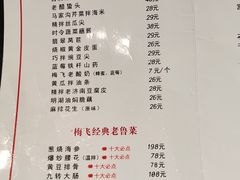 老醋蛰头 28元
马家沟芹菜拌海米 28元
辣拌丝瓜尖 28元
时令蔬菜蘸酱 29元
翡翠莴苣 26元
烧椒黄金皮蛋 29元
巧拌豌豆尖 29元
蓝莓铁杆山药 28元
梅飞老酸奶（蜂蜜、蓝莓） 7元/个
黄瓜拌油条 26元
辣拌老济南豆腐皮 26元
明湖油焖脆藕 26元
麻辣花生（原味） 26元
梅飞经典老鲁菜
葱烧海参 十大必点 198元
爆炒腰花（温拌） 十大必点 78元
黄豆排骨 十大必点 78元
九转大肠 十大必点 108元